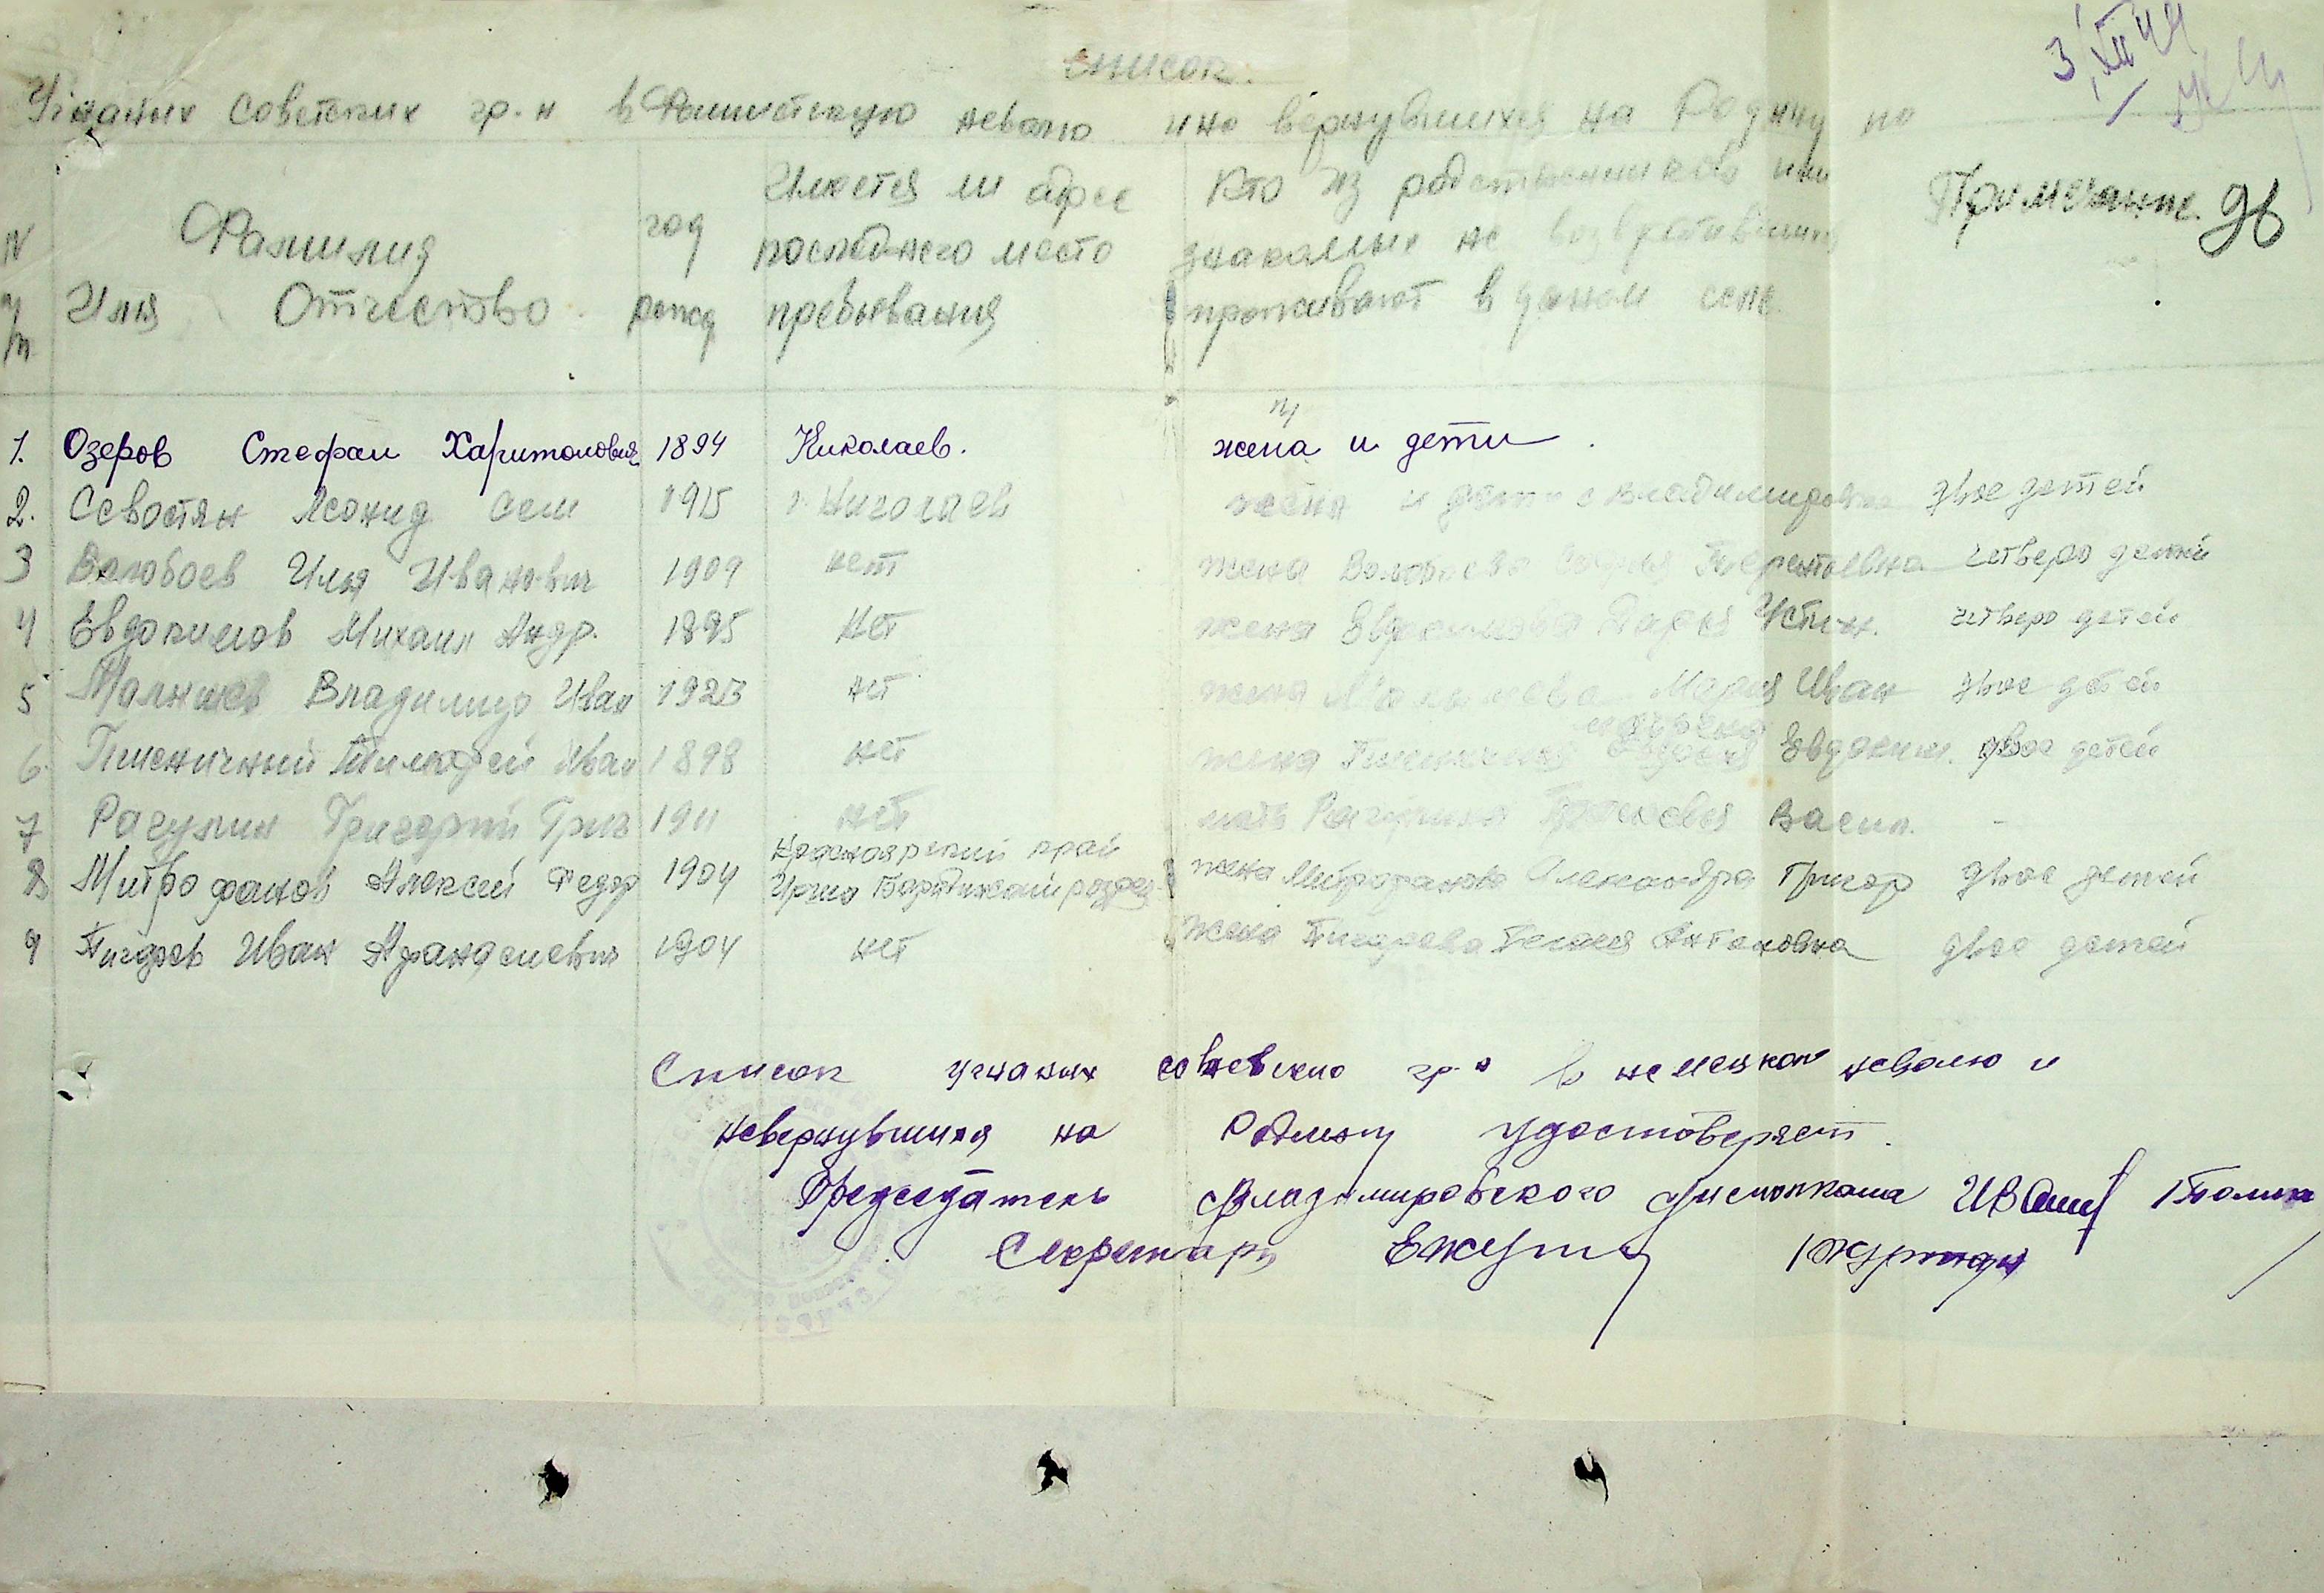 список.
Угнаных советских гр.н в Фашисткую неволю и не вернувшихся на Родину по
3/XII 44
N п/п
Фамилия Имя Отчество
год рожд
Имеется ли адрес последнего место пребывания
Кто из родственников или знакомых не возвратившихся проживают в даном селе
Примечание.
1. Озеров Стефан Харитонович 1894 Николаев. жена и дети.
2. Севостян Леонид Сем 1915 г. Николаев жена и дети с Владимировка двое детей
3 Волобоев Илья Иванович 1909 нет жена Терентьевна четверо детей
4 Евдокимов Михаил Андр. 1895 Нет жена Евдокимова Дарья Устин. четверо детей
5 Малышев Владимир Иван 1923 нет жена Малышева Мария Иван двое детей
6. Пшеничний Тимофей Иван 1898 нет жена Евдоким. двое детей
7 Рагулин Григорий Григ 1911 нет мать Рагулина Прасковья Васил. -
8 Митрофанов Алексей Федор 1904 Красноярский край жена Митрофанова Александра Григор двое детей
9 Иван 1904 нет жена Антоновна двое детей
Список угнаных гр.н в неволю и
невернувшихся на Родину удостоверяет.
Председатель Владимировского
Секретарь